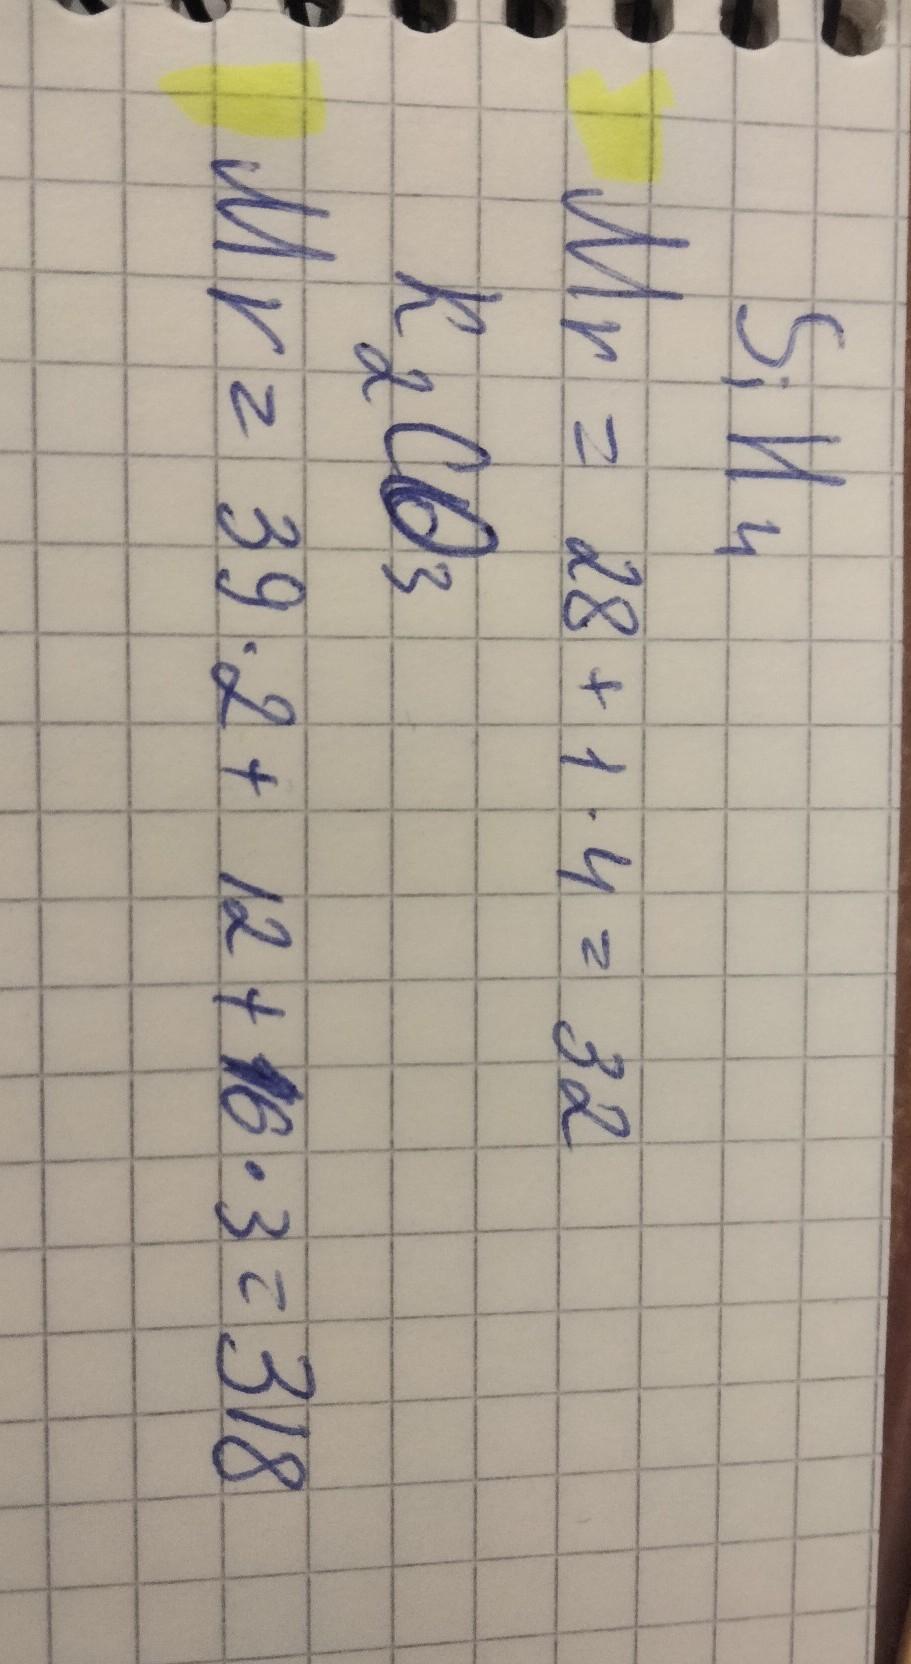 SiH4
Mr = 28 + 1 · 4 = 32
K2CO3
Mr = 39 · 2 + 12 + 16 · 3 = 318